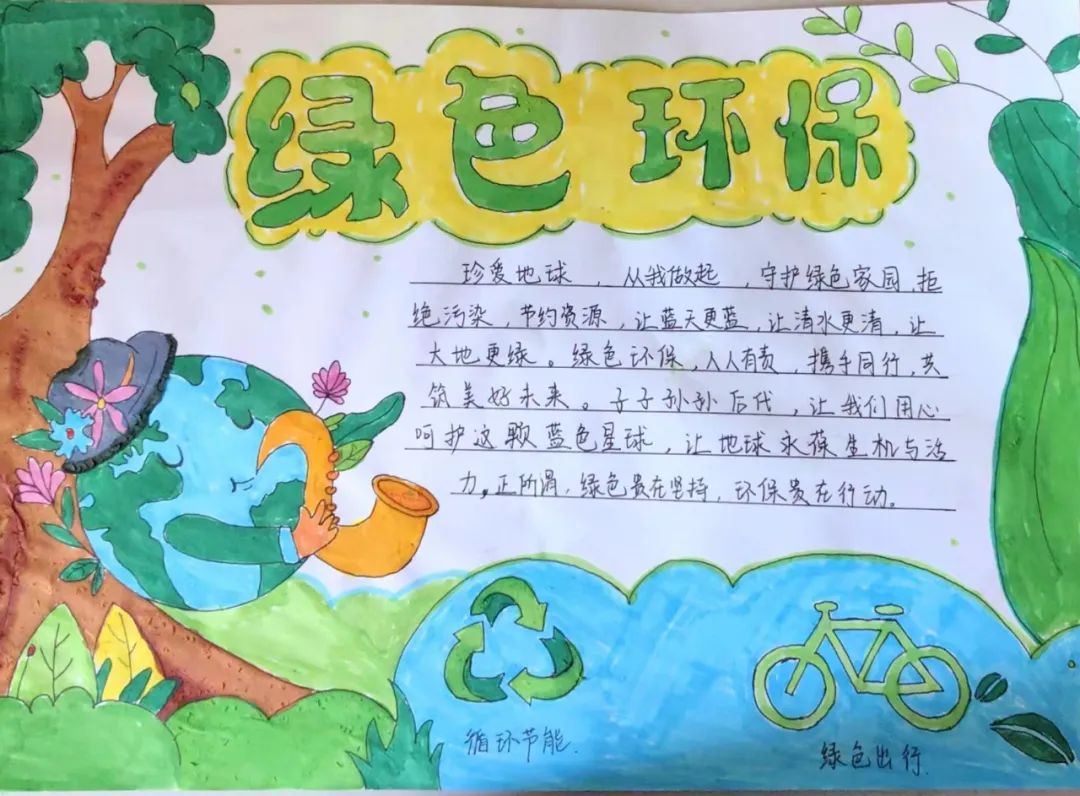 绿色环保
珍爱地球，从我做起，守护绿色家园，拒
绝污染，节约资源，让蓝天更蓝，让清水更清，让
大地更绿。绿色环保，人人有责，携手同行，共
筑美好未来。子子孙孙后代，让我们用心
呵护这颗蓝色星球，让地球永葆生机与活
力。正所谓，绿色贵在坚持，环保贵在行动。
循环节能.
绿色出行.